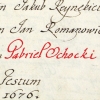 Jakub Reynekie
n Jan Romanowic
Gabriel Ochocki
Festum
1676.